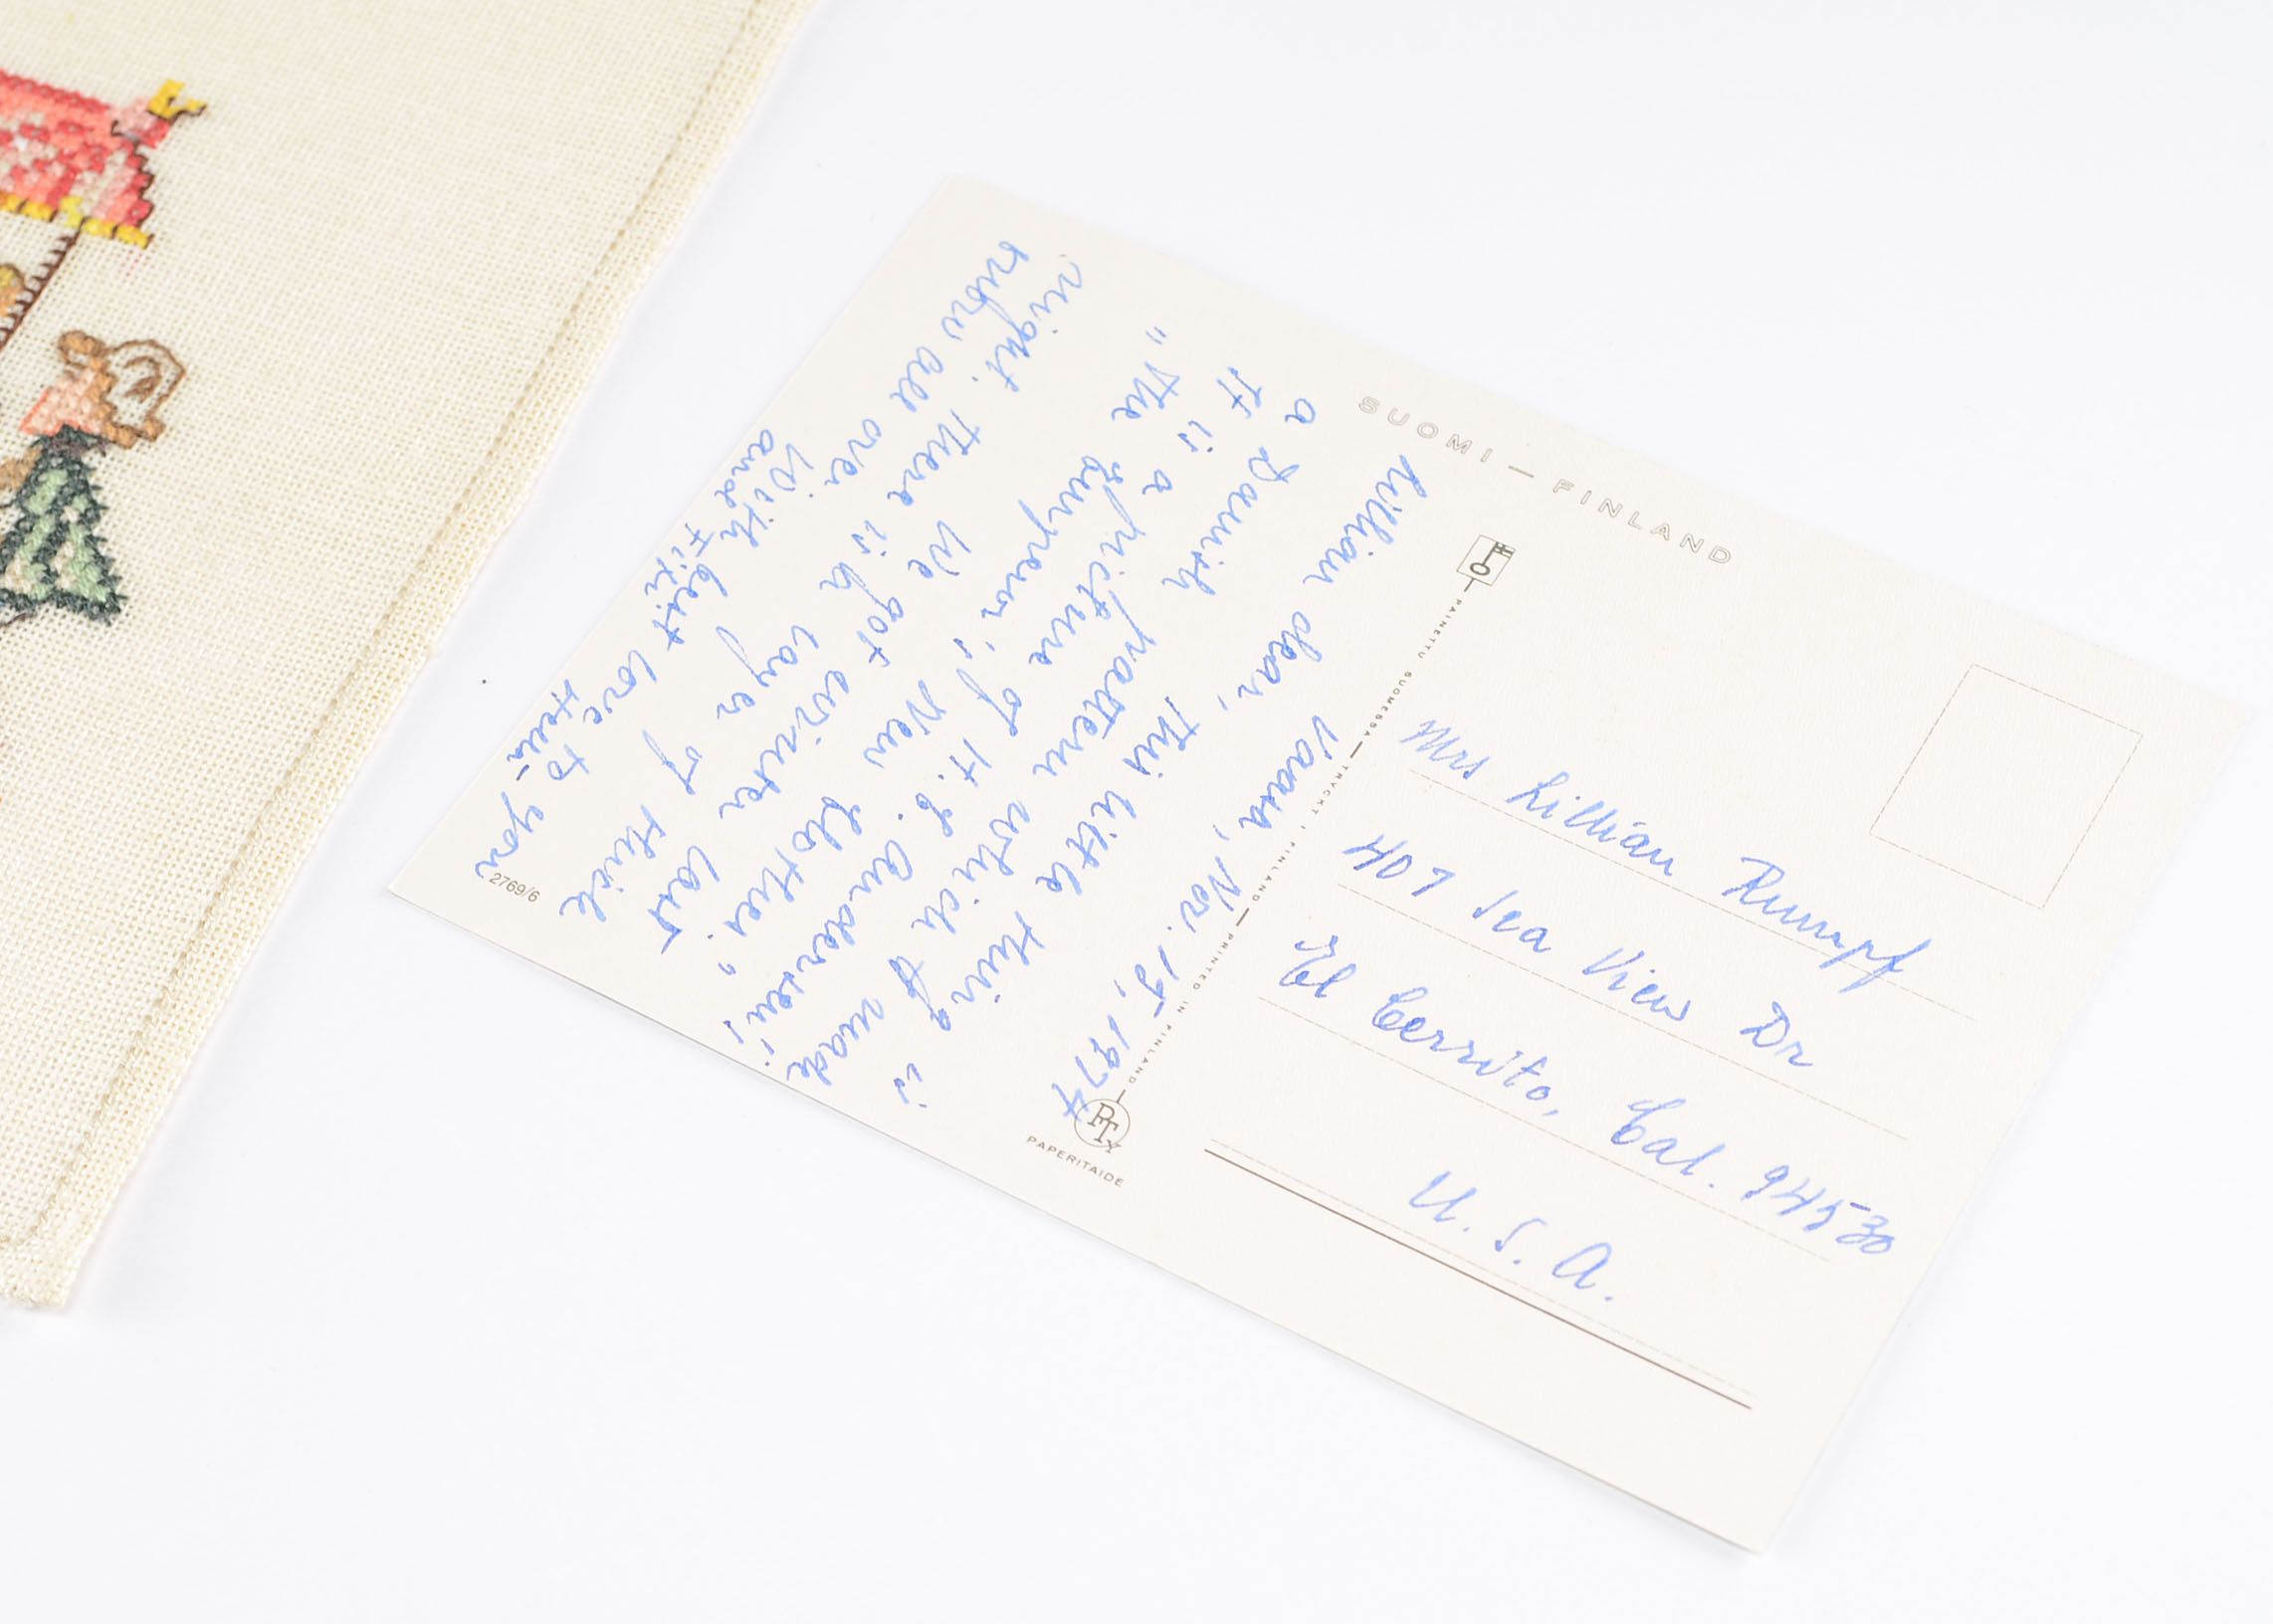 SUOMI — FINLAND
Vaasa, Nov. 15, 1974
Lillian dear, This little thing is
a Danish pattern which I made.
It is a picture of H. C. Andersen's
„The Emperor's New Clothes.”
We got winter last
night. There is a layer of thick
snow all over
With best love to you
and
2769/6
PAINETTU SUOMESSA — TRYCKT I FINLAND — PRINTED IN FINLAND
PTX
PAPERITAIDE
Mrs Lillian Rumpf
407 Sea View Dr
El Cerrito, Cal. 94530
U. S. A.